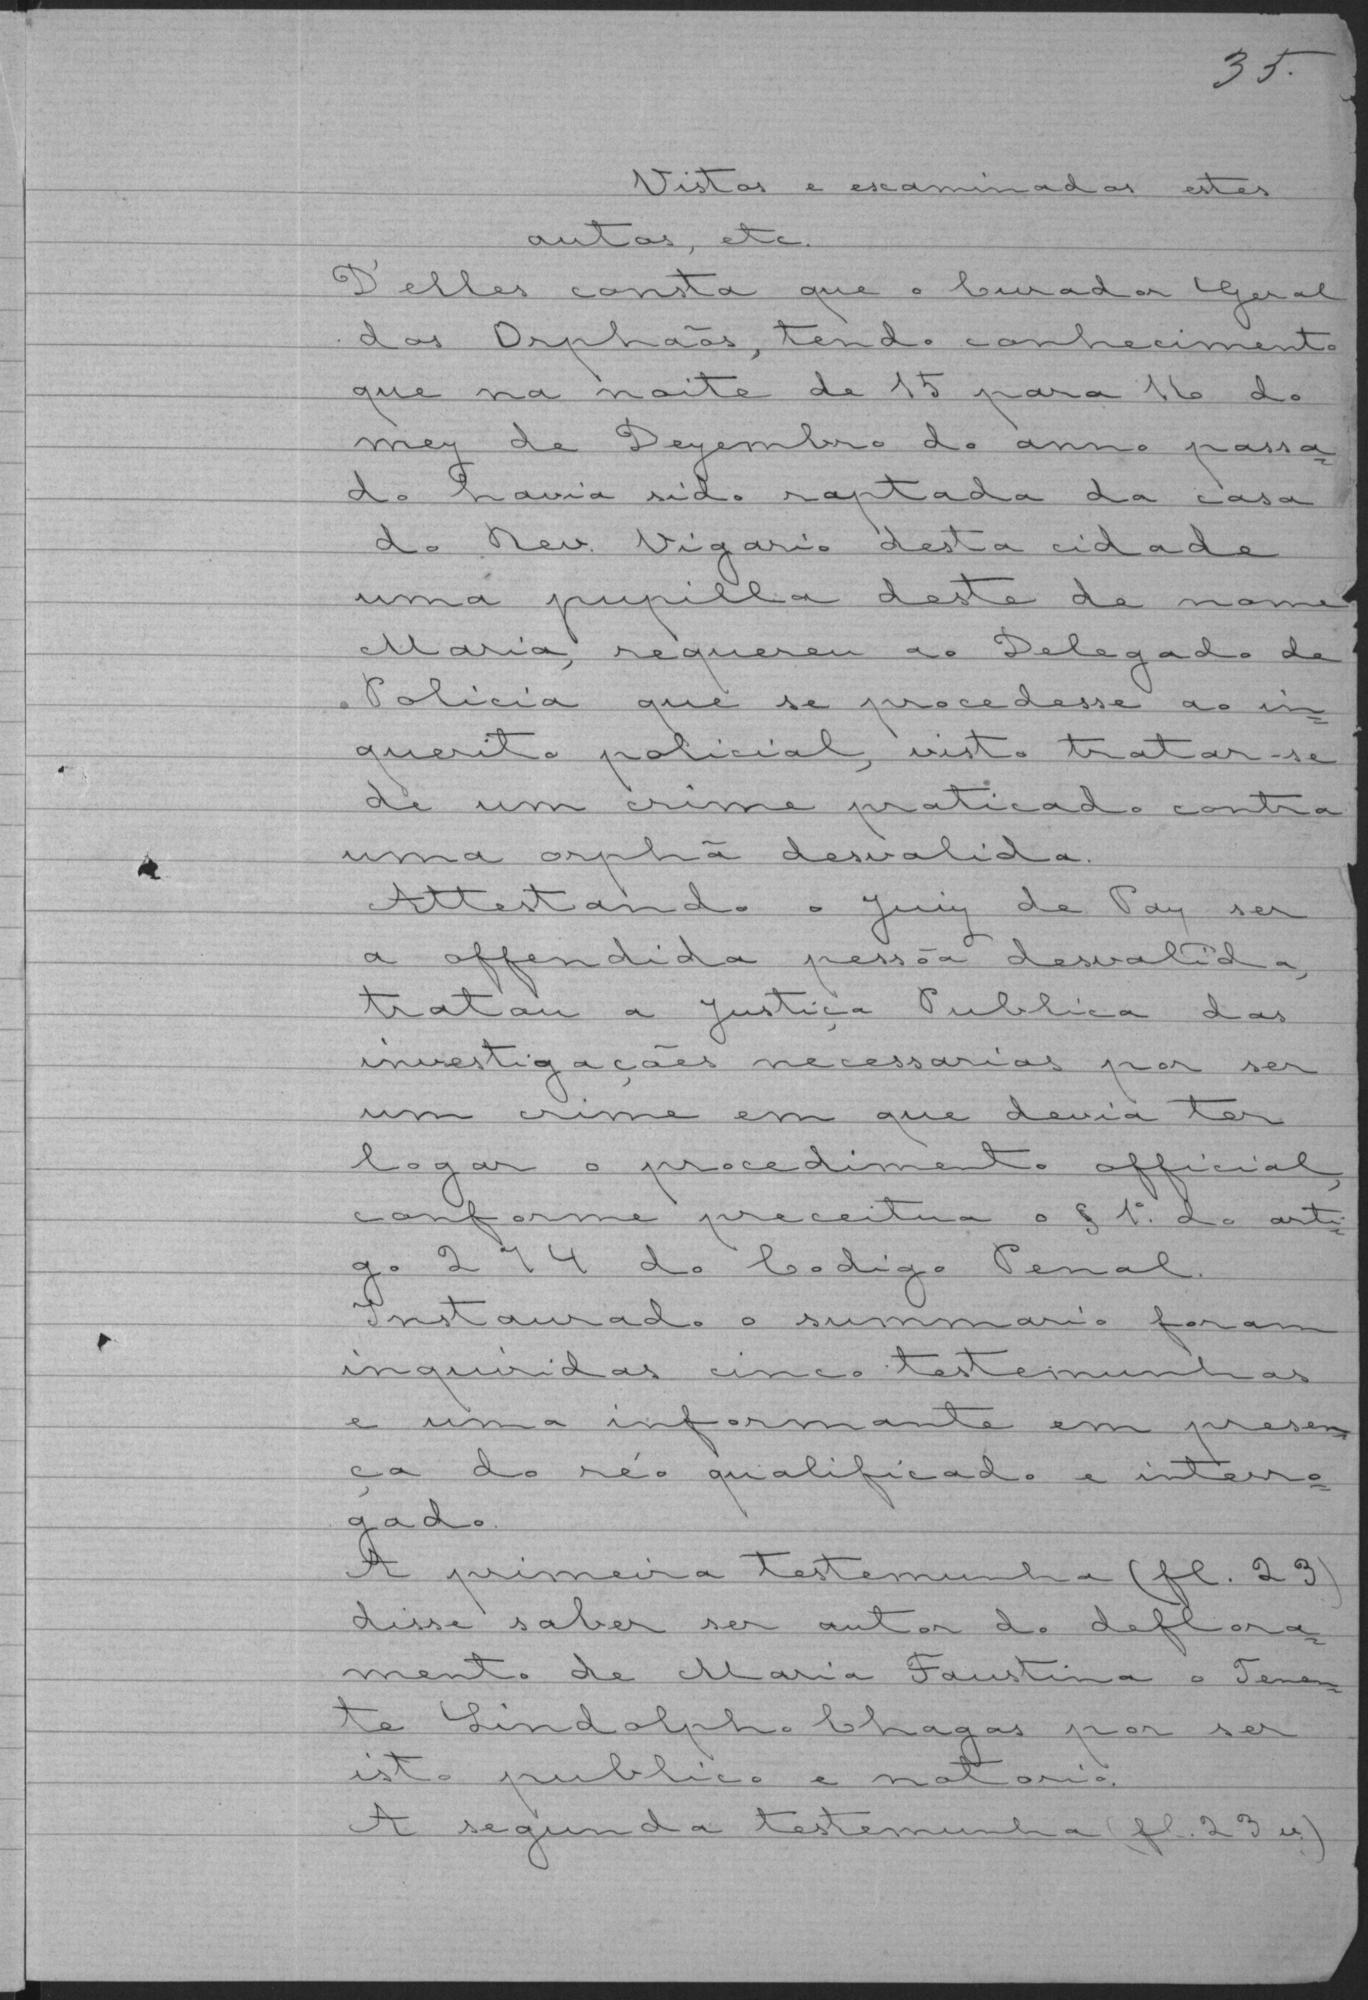 35.
Vistos e examinados estes
autos, etc.
D'elles consta que o Curador Geral
dos Orphãos, tendo conhecimento
que na noite de 15 para 16 do
mez de Dezembro do anno passa=
do havia sido raptada da casa
do Rev. Vigario desta cidade
uma pupilla deste de nome
Maria, requereu ao Delegado de
Policia que se procedesse ao in=
querito policial, visto tratar-se
de um crime praticado contra
uma orphã desvalida.
Attestando o Juiz de Paz ser
a offendida pessôa desvalida,
tratou a Justiça Publica das
investigações necessarias por ser
um crime em que devia ter
logar o procedimento official,
conforme preceitua o § 1º. do arti=
go 274 do Codigo Penal.
Instaurado o summario foram
inquiridas cinco testemunhas
e uma informante em presen=
ça do réo qualificado e interro=
gado.
A primeira testemunha (fl. 23)
disse saber ser autor do deflora=
mento de Maria Faustina o Tenen=
te Lindolpho Chagas por ser
isto publico e notorio.
A segunda testemunha (fl. 23 v.)